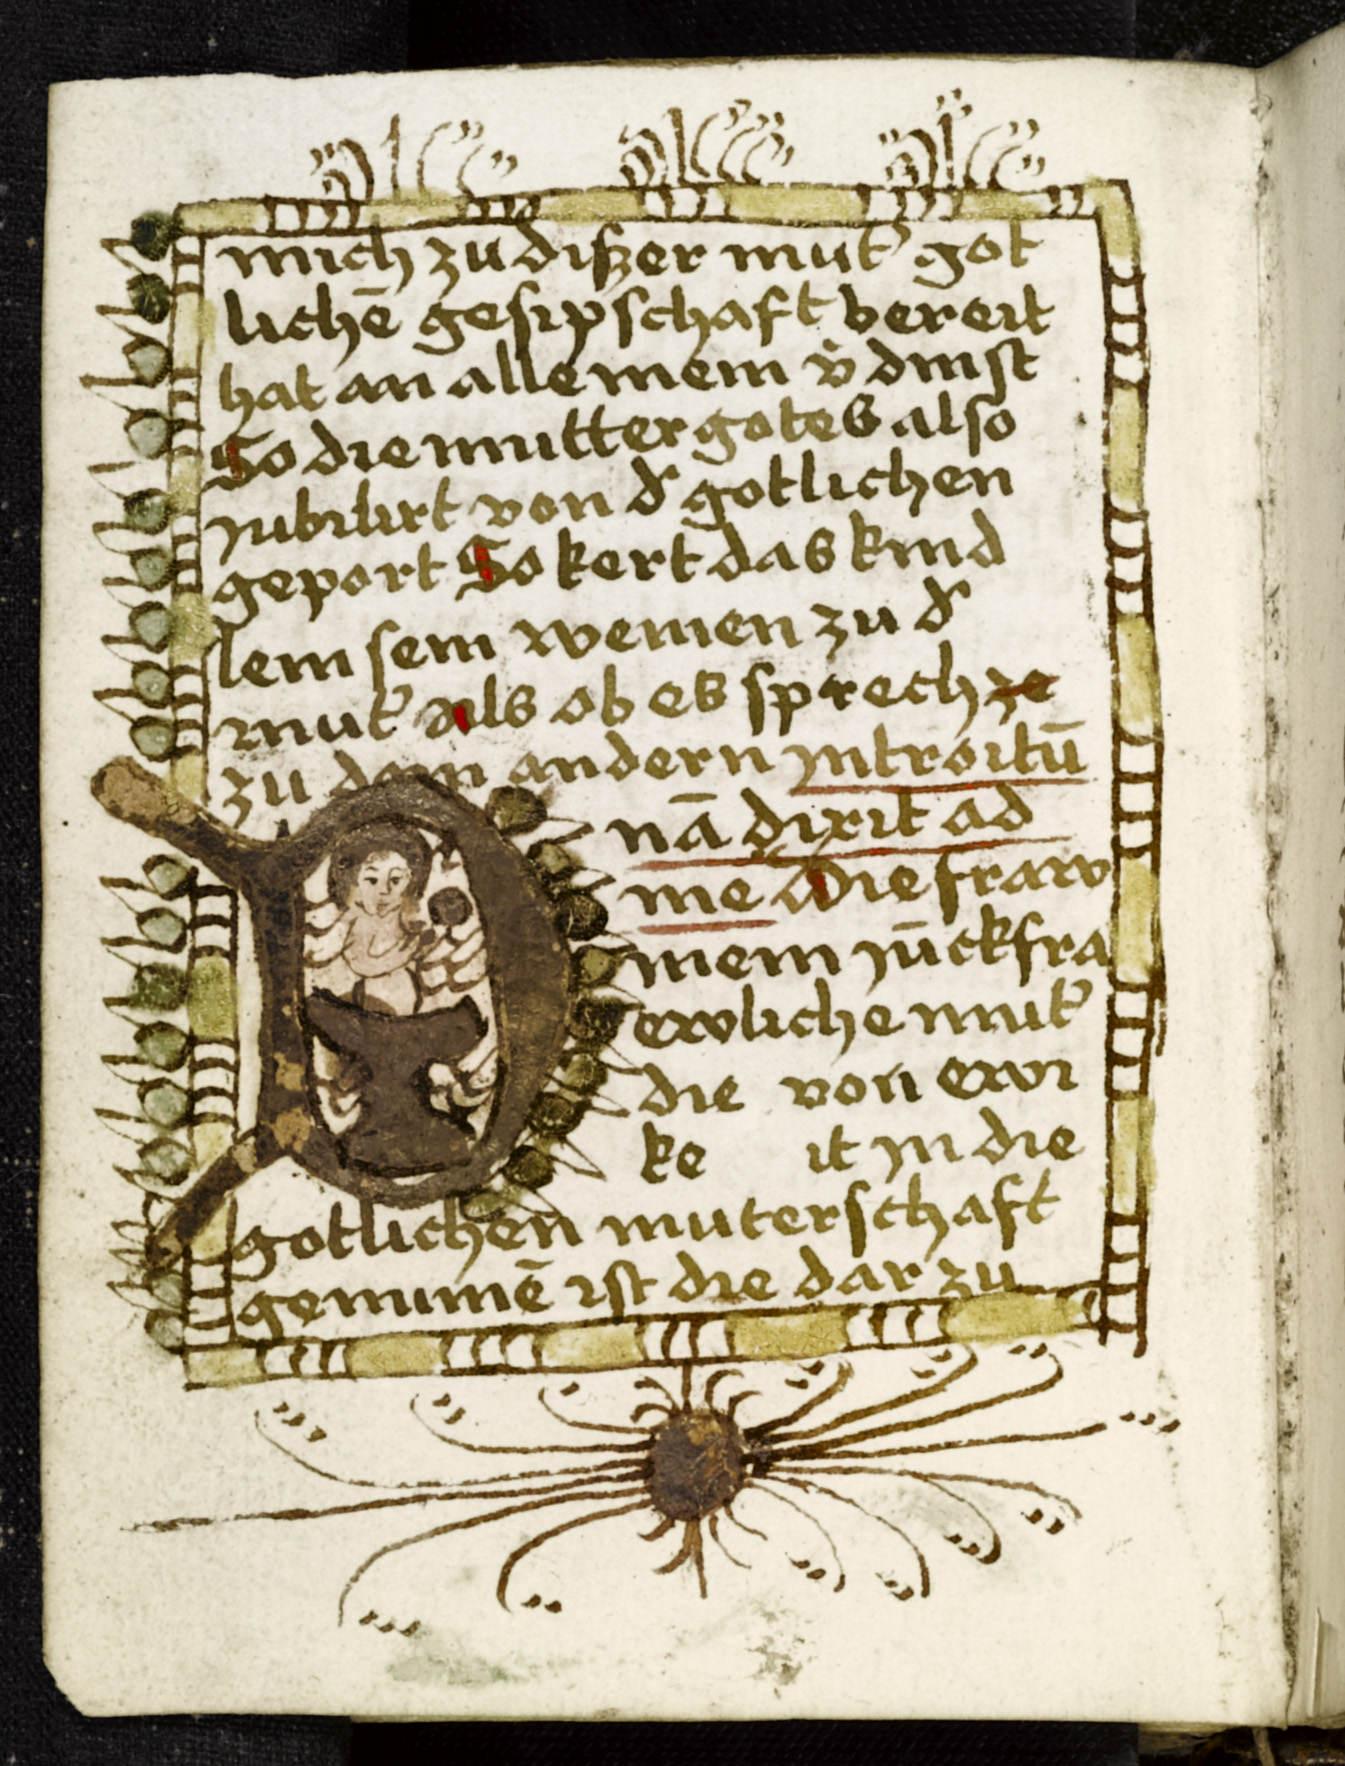 mich zu diszer mut' got
lichē gesipschaft bereit
hat an alle mein v̾dinst
So die mutter gotes also
jubilirt von d' gotlichen
geport So kert das kind
lein sein weinen zu d'
mut' als ob es sprech ze
zu dem andern jntroitū
nā dixit ad
me Die fraw
mein jūckfra
ewliche mut'
die von ewi
ke it jn die
gotlichen muterschaft
genumē ist die dar zu